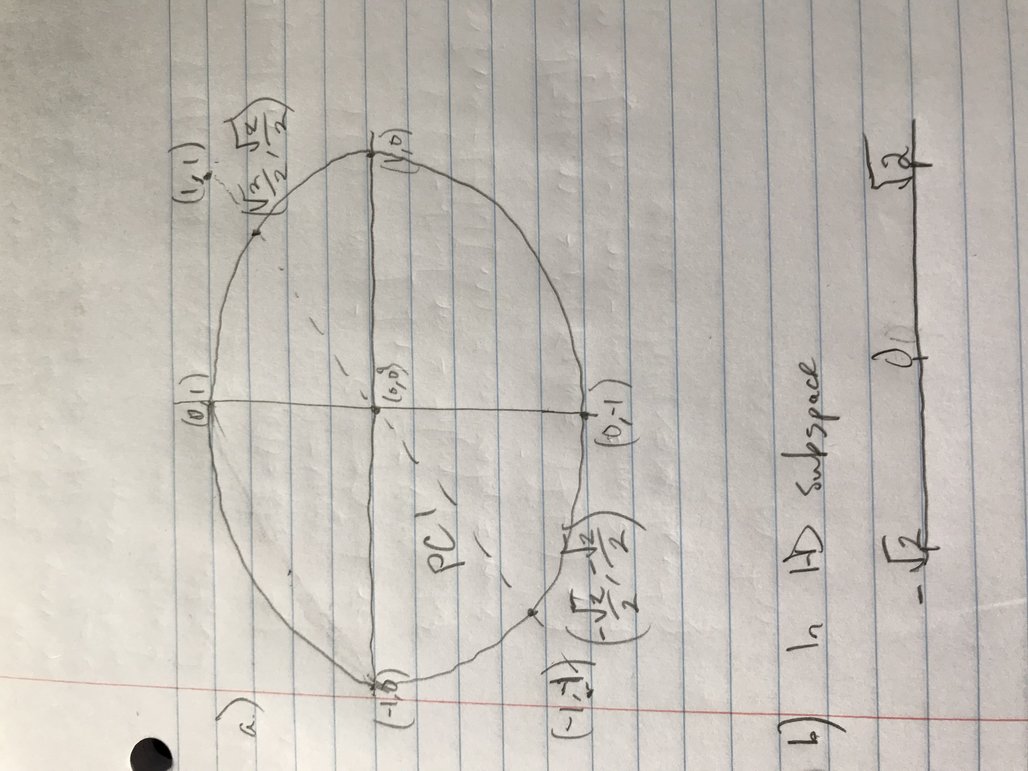 (0,1)
(1,1)
a.)
(√2/2, √2/2)
(-1,0)
(0,0)
(1,0)
PC1
(-1,-1)
(-√2/2, -√2/2)
(0,-1)
b) In 1-D subspace
-√2 0 √2